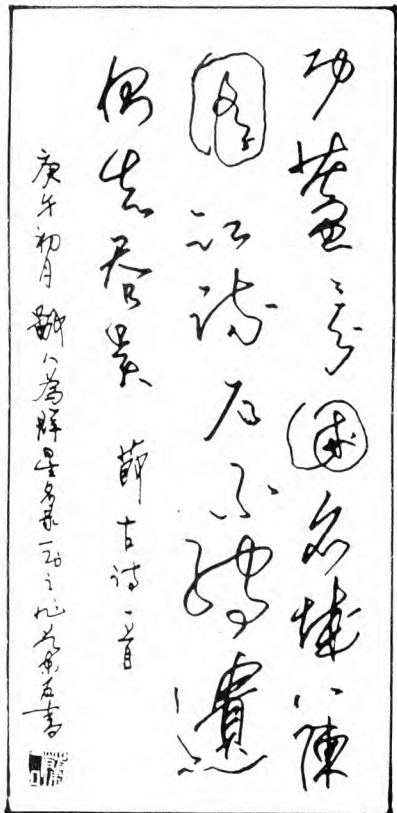 功蓋三分國名成八陳
圖江流石不轉遺
恨失吞吳 節古詩一首
庚午初月 為群星名录 書